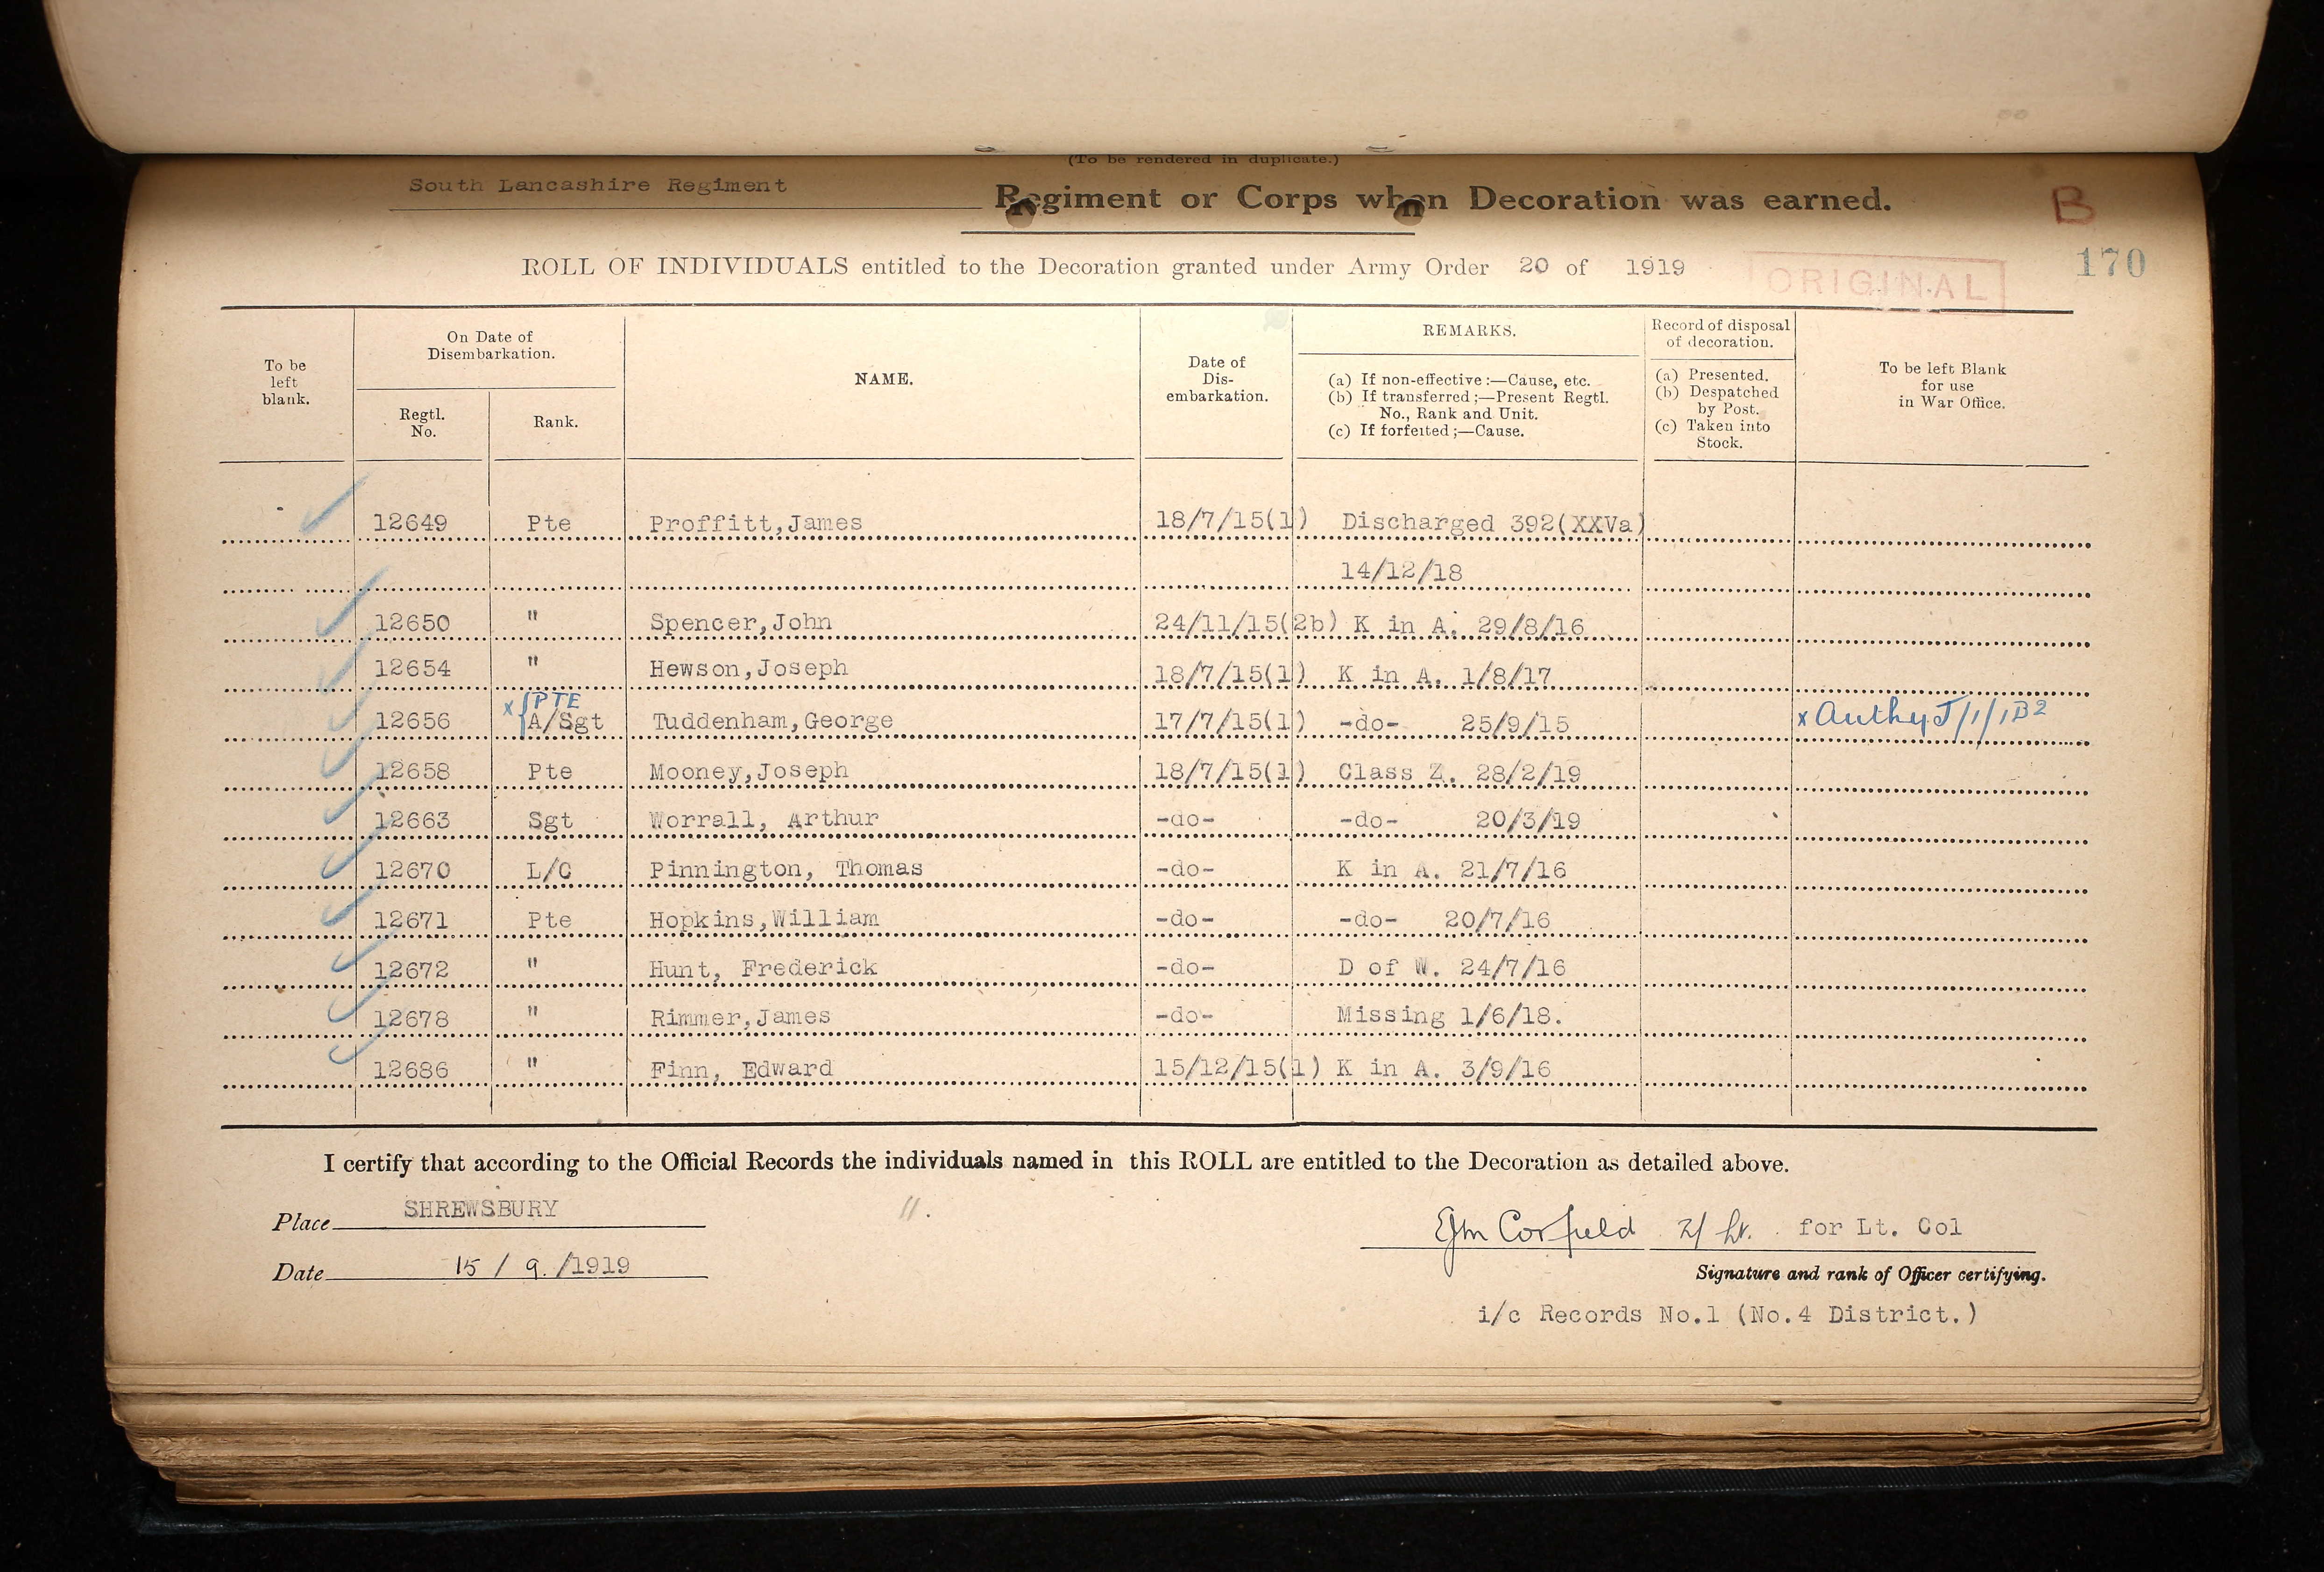 (To be rendered in duplicate.)
South Lancashire Regiment Regiment or Corps when Decoration was earned.
B
170
ROLL OF INDIVIDUALS entitled to the Decoration granted under Army Order 20 of 1919
ORIGINAL
To be left blank.
On Date of Disembarkation.
Regtl. No.
Rank.
NAME.
Date of Dis-embarkation.
REMARKS.
(a) If non-effective :—Cause, etc.
(b) If transferred ;—Present Regtl. No., Rank and Unit.
(c) If forfeited ;—Cause.
Record of disposal of decoration.
(a) Presented.
(b) Despatched by Post.
(c) Taken into Stock.
To be left Blank for use in War Office.
12649 Pte Proffitt,James 18/7/15(1) Discharged 392(XXVa)
14/12/18
12650 " Spencer,John 24/11/15(2b) K in A. 29/8/16
12654 " Hewson,Joseph 18/7/15(1) K in A. 1/8/17
x { PTE
12656 A/Sgt Tuddenham,George 17/7/15(1) -do- 25/9/15 x Authy J/1/1B2
12658 Pte Mooney,Joseph 18/7/15(1) Class Z. 28/2/19
12663 Sgt Worrall, Arthur -do- -do- 20/3/19
12670 L/C Pinnington, Thomas -do- K in A. 21/7/16
12671 Pte Hopkins,William -do- -do- 20/7/16
12672 " Hunt, Frederick -do- D of W. 24/7/16
12678 " Rimmer,James -do- Missing 1/6/18.
12686 " Finn, Edward 15/12/15(1) K in A. 3/9/16
I certify that according to the Official Records the individuals named in this ROLL are entitled to the Decoration as detailed above.
Place SHREWSBURY
11.
EJm Corfield 2/Lt. for Lt. Col
Date 15 / 9. /1919
Signature and rank of Officer certifying.
i/c Records No.1 (No.4 District.)